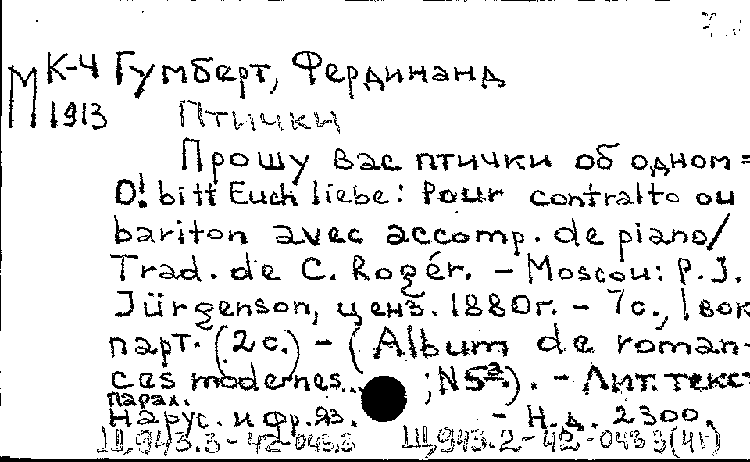 М К-4 Гумберт, Фердинанд
1913 Птички
Прошу вас птички об одном =
O! bitt Euch liebe: Pour contralto ou
bariton avec accomp. de piano/
Trad. de C. Rogér. – Moscou: P. J.
Jürgenson, ценз. 1880г. – 7с., 1 вок
парт. (2 с.) – (Album de roman-
ces modernes... ; N5²). – Лит. текст
парал.
На рус. и фр. яз. – Н.д. 2300.
Ц,943.3-42-043.3 Ц,943.2-42-043 3(41)